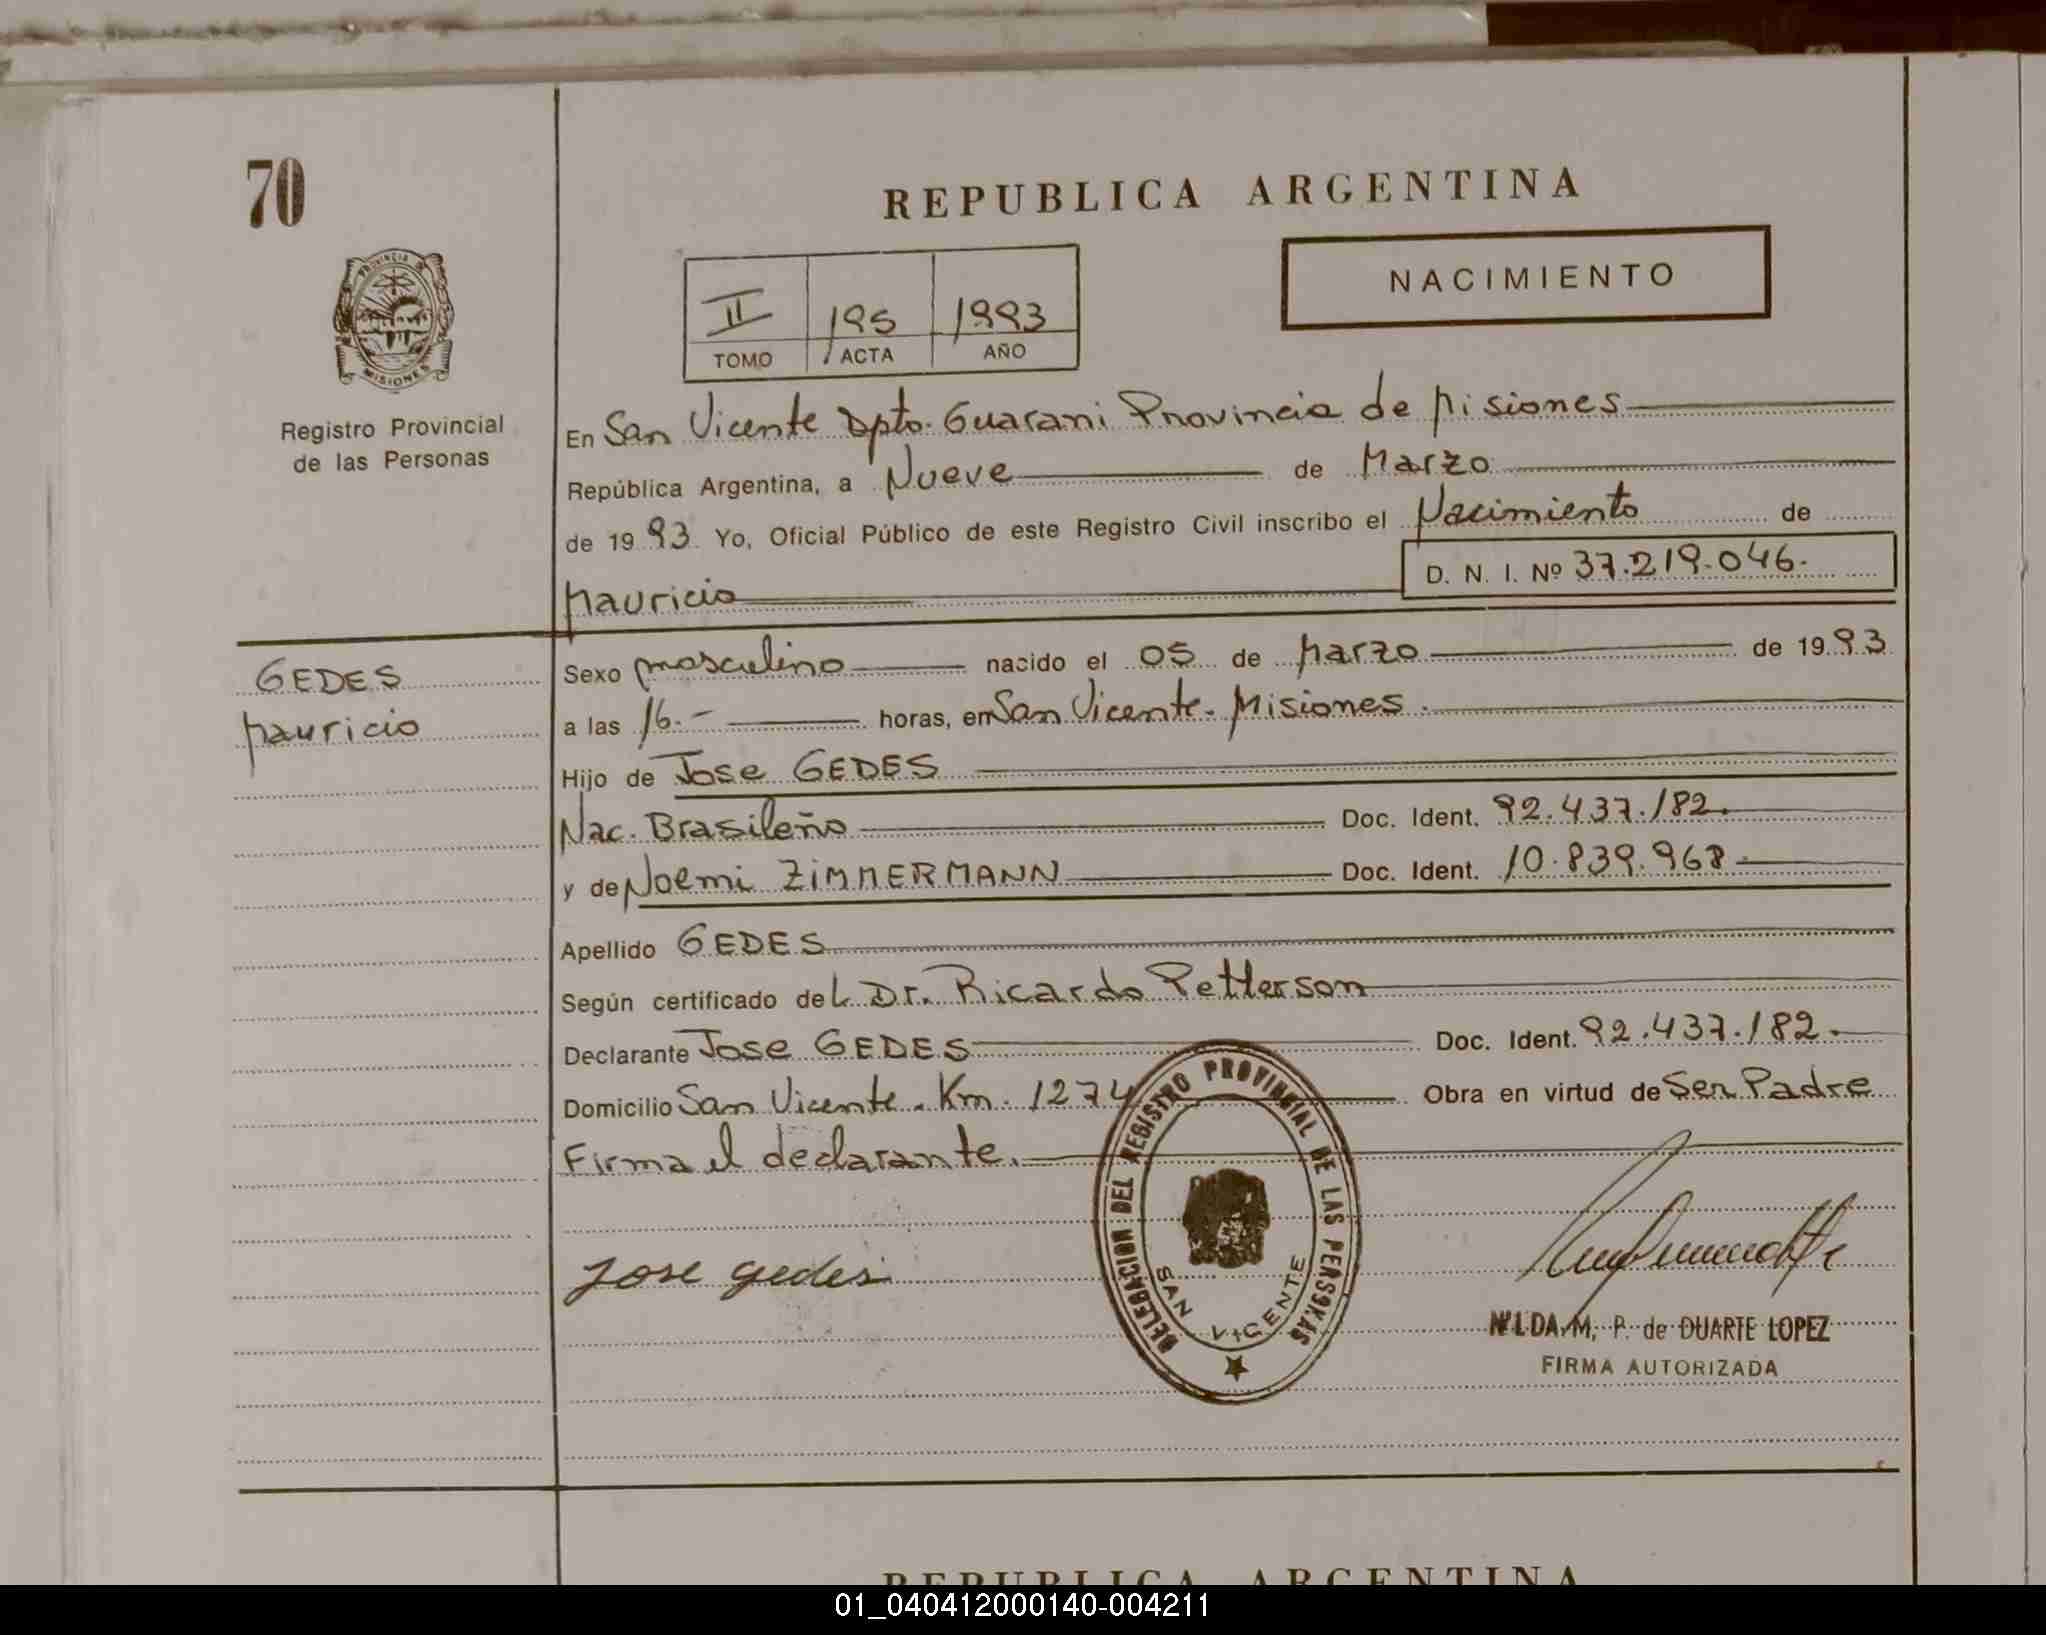 70
REPUBLICA ARGENTINA
NACIMIENTO
II 195 1993
TOMO ACTA AÑO
PROVINCIA DE MISIONES
Registro Provincial
de las Personas
En San Vicente Dpto. Guarani Provincia de Misiones
República Argentina, a Nueve de Marzo
de 1993 Yo, Oficial Público de este Registro Civil inscribo el Nacimiento de
D. N. I. Nº 37.219.046.
Mauricio
GEDES
Mauricio
Sexo masculino nacido el 05 de Marzo de 1993
a las 16.- horas, en San Vicente. Misiones.
Hijo de Jose GEDES
Nac. Brasileño Doc. Ident. 92.437.182.
y de Noemi ZIMMERMANN Doc. Ident. 10.839.968
Apellido GEDES
Según certificado del Dr. Ricardo Petterson
Declarante Jose GEDES Doc. Ident. 92.437.182.
Domicilio San Vicente. Km. 1274 Obra en virtud de Ser Padre
Firma el declarante.
jose gedes
DELEGACION DEL REGISTRO PROVINCIAL DE LAS PERSONAS
SAN VICENTE
NILDA M, P. de DUARTE LOPEZ
FIRMA AUTORIZADA
REPUBLICA ARGENTINA
01_040412000140-004211